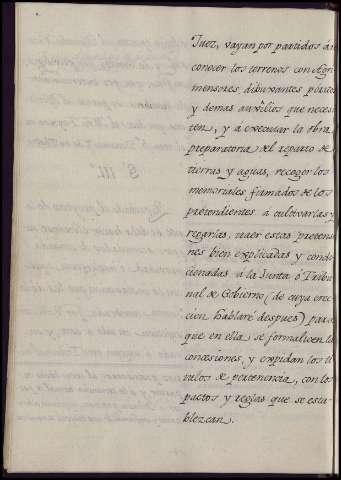 Juez, vayan por partidos á re
conocer los terrenos con Agri
mensores, dibuxantes, peritos
y demas auxîlios que necesi
ten, y á executar la obra
preparatoria del reparto de
tierras y aguas, recoger los
memoriales firmados de los
pretendientes a cultivarlas y
regarlas, traer estas pretensio
nes bien explicadas y condi
cionadas á la Junta ó Tribu
nal de Gobierno (de cuya erec
cion hablaré despues) para
que en ella se formalicen las
concesiones, y expidan los ti
tulos de pertenencia, con los
pactos y reglas que se esta
blezcan.